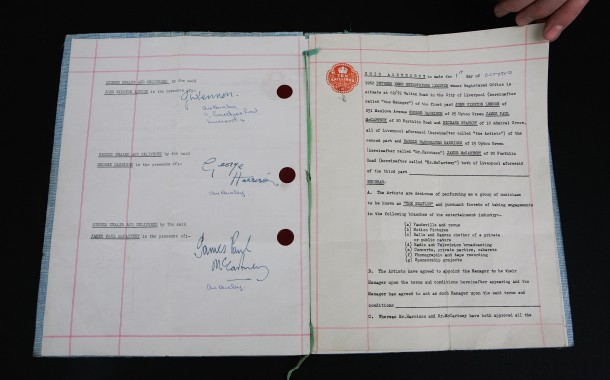 SIGNED SEALED AND DELIVERED by the said
JOHN WINSTON LENNON in the presence of:-
JWLennon.
SIGNED SEALED AND DELIVERED by the said
GEORGE HARRISON in the presence of:-
George
Harrison
SIGNED SEALED AND DELIVERED by the said
JAMES PAUL McCARTNEY in the presence of:-
James Paul
McCartney
TEN
SHILLINGS
THIS AGREEMENT is made the 1st day of OCTOBER
1962 BETWEEN NEMS ENTERPRISES LIMITED whose Registered Office is
situate at Walton Road in the City of Liverpool (hereinafter
called "the Manager") of the first part JOHN WINSTON LENNON of
251 Menlove Avenue GEORGE HARRISON of 25 Upton Green JAMES PAUL
McCARTNEY of 20 Forthlin Road and RICHARD STARKEY of 10 Admiral Grove,
all of Liverpool aforesaid (hereinafter called "the Artists") of the
second part and HAROLD HARGREAVES HARRISON of 25 Upton Green
(hereinafter called "Mr.Harrison") JAMES McCARTNEY of 20 Forthlin
Road (hereinafter called "Mr.McCartney") both of Liverpool aforesaid
of the third part
WHEREAS:
A. The Artists are desirous of performing as a group of musicians
to be known as "THE BEATLES" and pursuant thereto of taking engagements
in the following branches of the entertainment industry:-
(a) Vaudeville and revue
(b) Motion Pictures
(c) Balls and Dances whether of a private
or public nature
(d) Radio and Television broadcasting
(e) Concerts, private parties, cabarets
(f) Phonographic and tape recording
(g) Sponsorship projects
B. The Artists have agreed to appoint the Manager to be their
Manager upon the terms and conditions hereinafter appearing and the
Manager has agreed to act as such Manager upon the said terms and
conditions
C. Whereas Mr.Harrison and Mr.McCartney have both approved all the